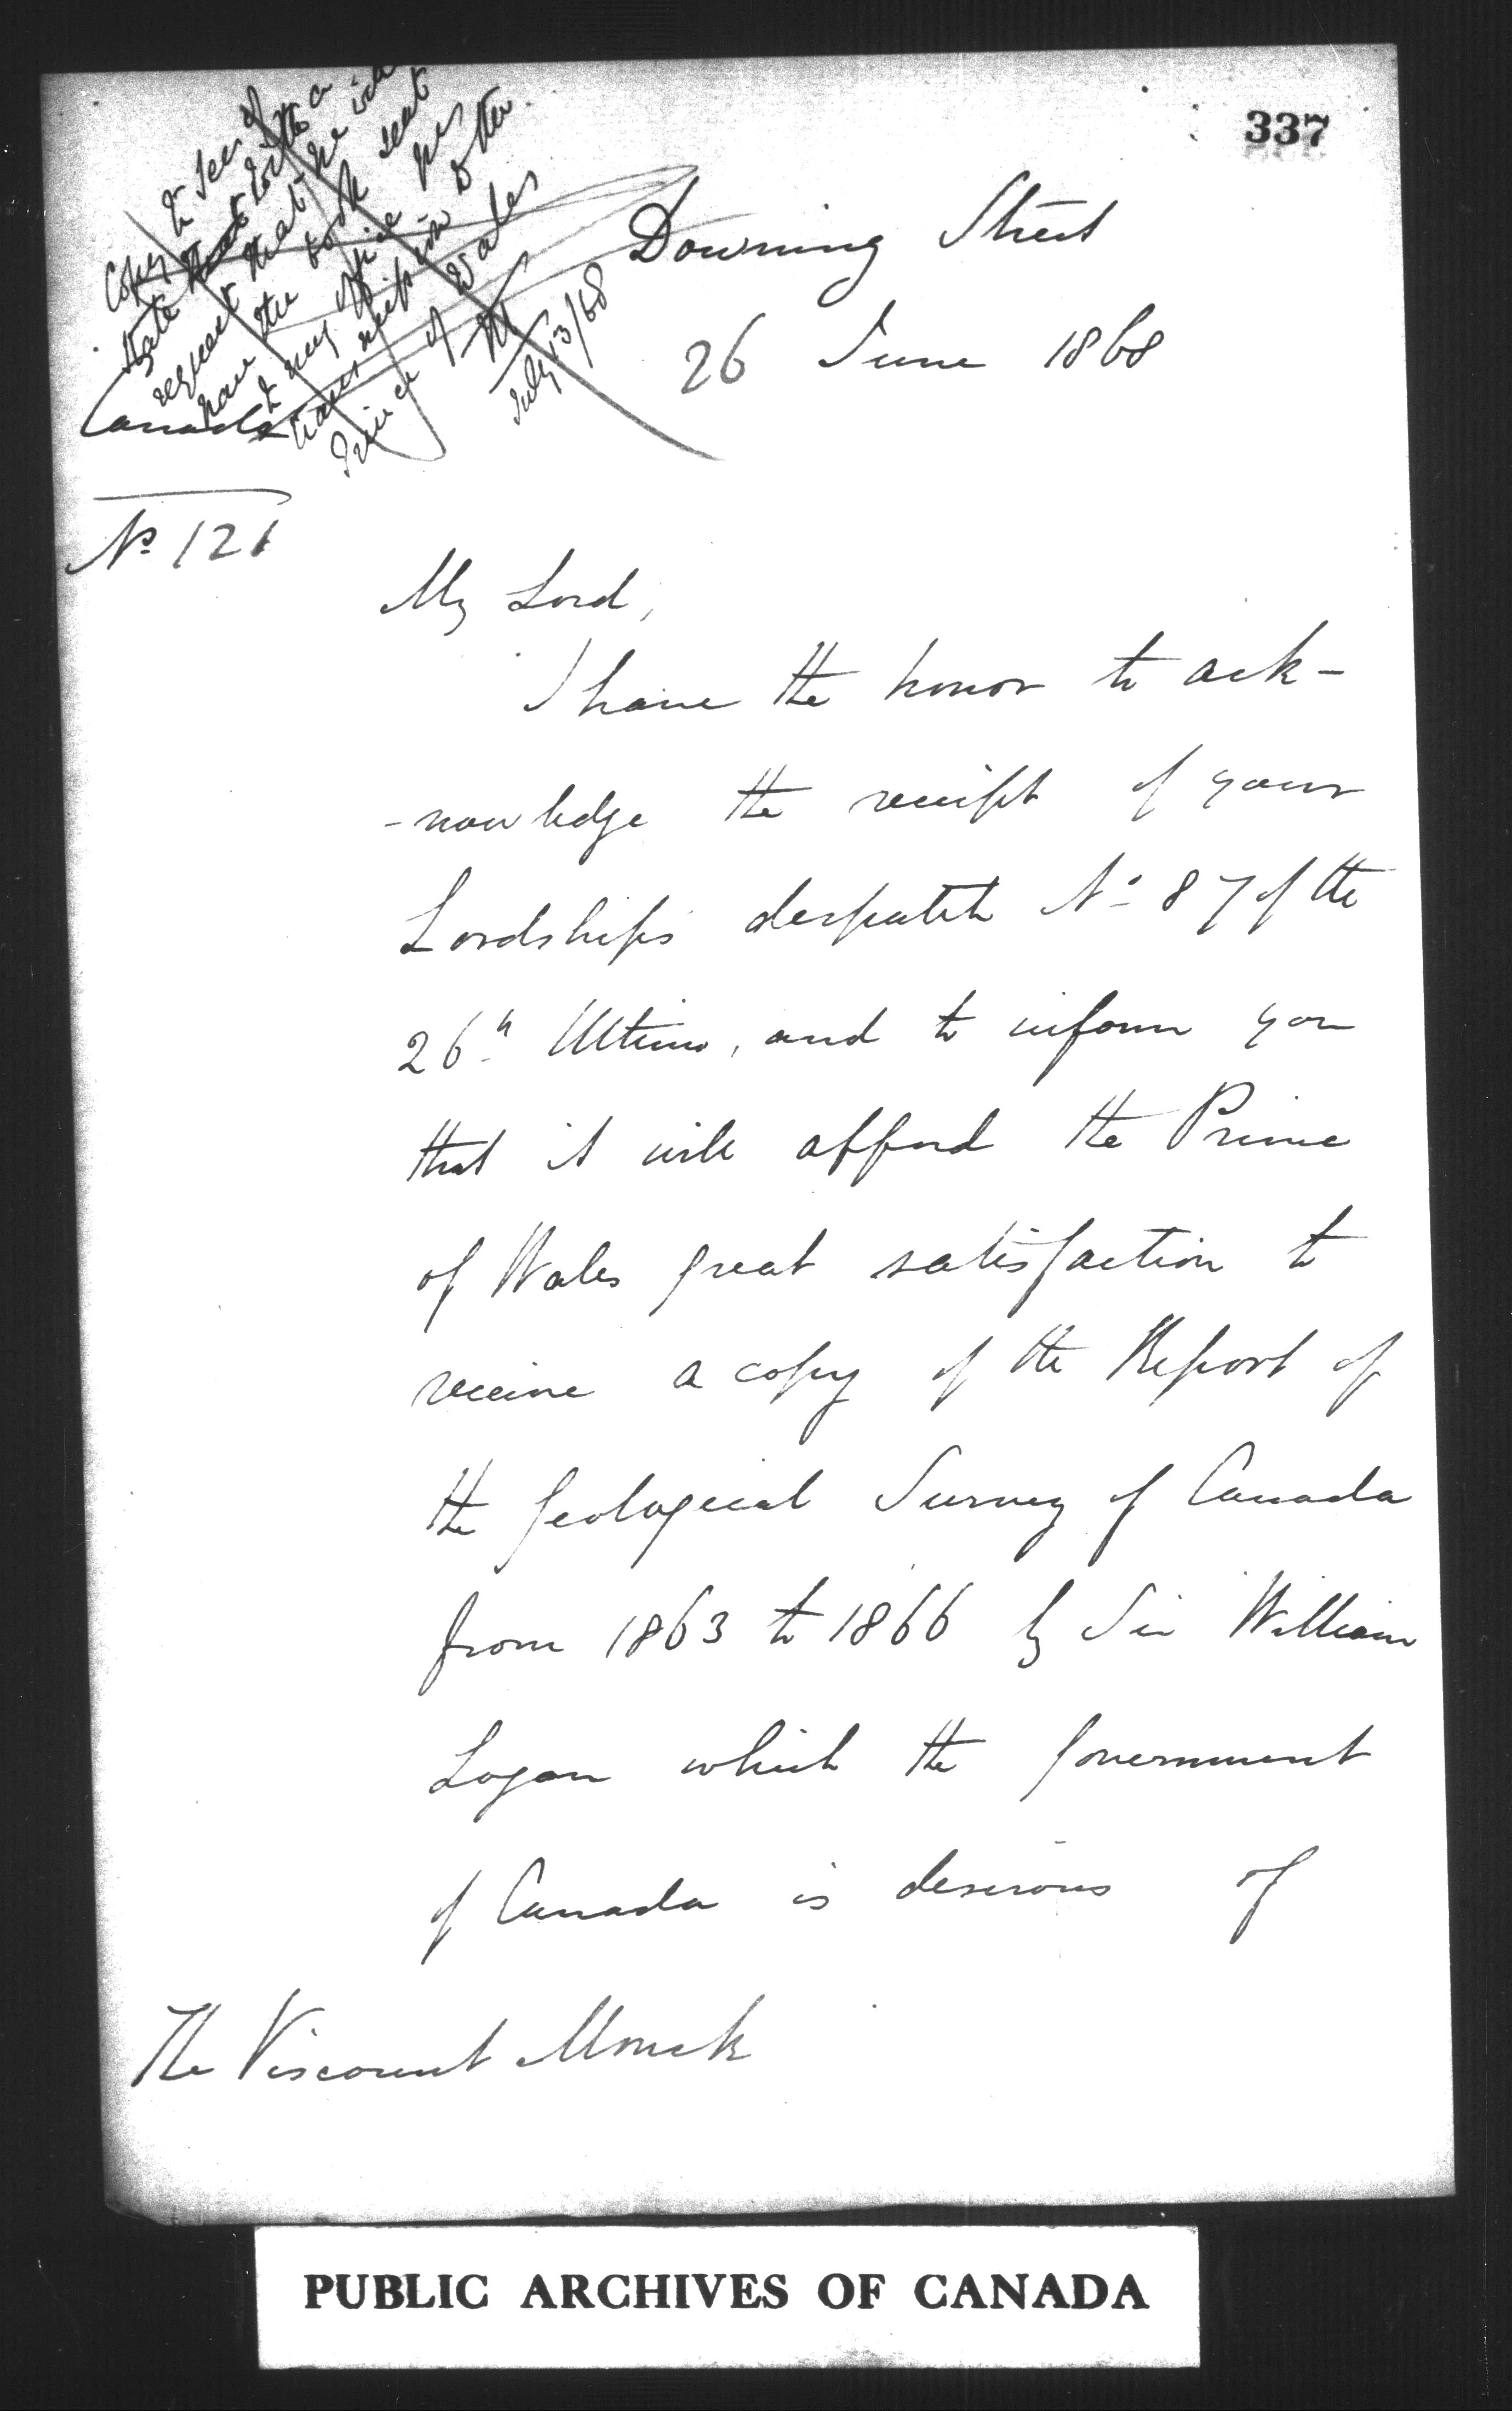 337
Copy to Secy of
State that with a
request that he will
have the book sent
to my office for
transmission to the
Prince of Wales
M
July 13/68
Downing Street
26 June 1868
Canada
No 121
My Lord,
I have the honor to ack-
-nowledge the receipt of your
Lordship's despatch No 87 of the
26th Ultimo, and to inform you
that it will afford the Prince
of Wales great satisfaction to
receive a copy of the Report of
the Geological Survey of Canada
from 1863 to 1866 by Sir William
Logan which the Government
of Canada is desirous of
The Viscount Monck
PUBLIC ARCHIVES OF CANADA